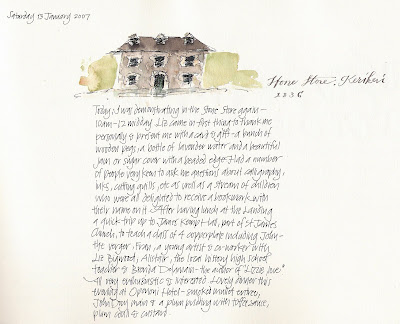 Saturday 13 January 2007
Stone Store, Kerikeri
1836
Today I was demonstrating in the Stone Store again -
10am - 12 midday. Liz came in first thing to thank me
personally & present me with a card & gift - a bunch of
wooden pegs, a bottle of lavender water and a beautiful
jam or sugar cover with a beaded edge. Had a number
of people very keen to ask me questions about calligraphy,
inks, cutting quills, etc as well as a stream of children
who were all delighted to receive a bookmark with
their name on it. After having lunch at the Landing
a quick trip up to James Kemp Hall, part of St James
Church, to teach a class of 4 copperplate including John -
the verger, Fran, a young artist & co-worker with
Liz Bigwood, Alistair, the local history high school
teacher & Brenda
- the author of
All very enthusiastic & interested. Lovely dinner this
evening at Opononi Hotel - smoked mullet entree,
John Dory main & a plum pudding with toffee sauce,
plum coulis & custard.